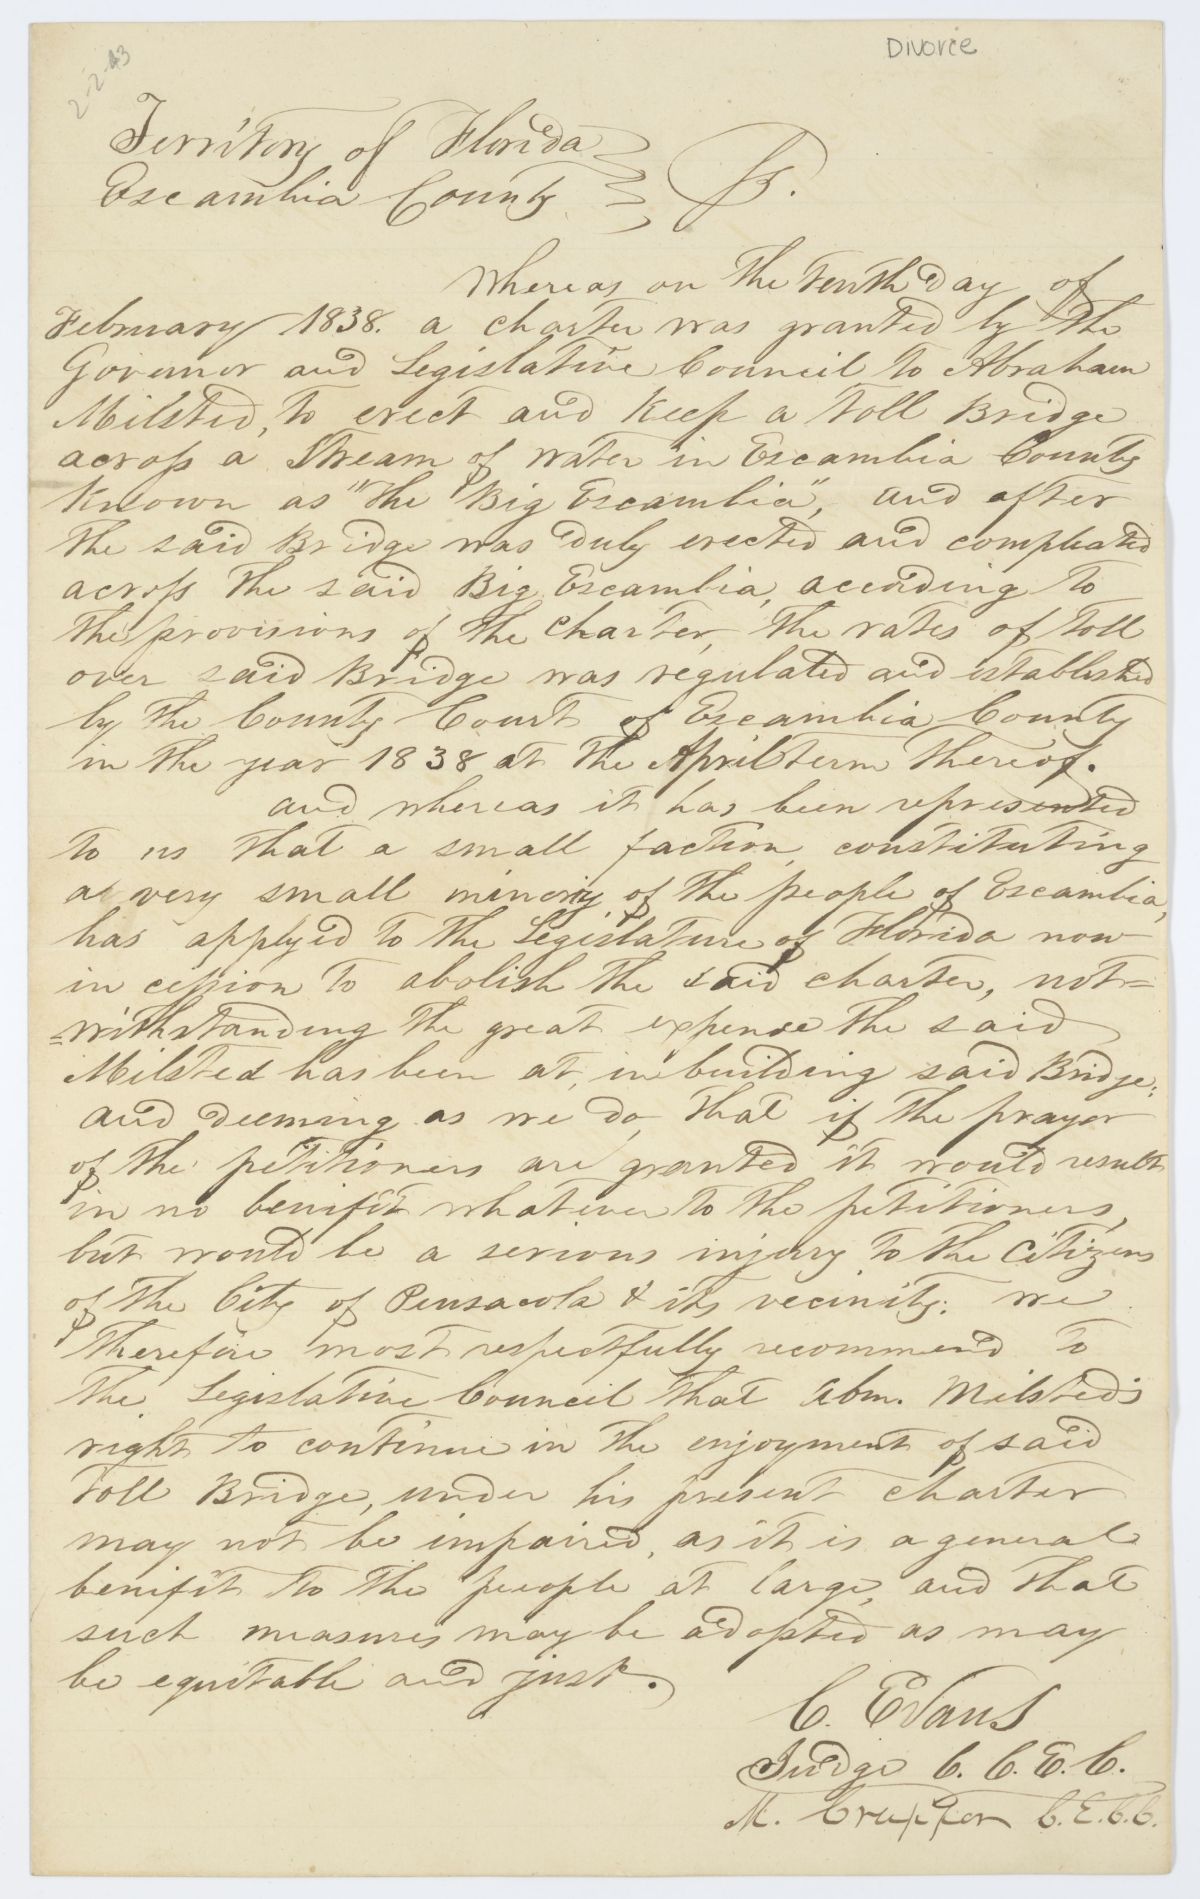 2-2-43
Divorce
Territory of Florida
Escambia County
Whereas on the tenth day of
February 1838. a charter was granted by the
Governor and Legislative Council to Abraham
Milsted, to erect and Keep a toll Bridge
across a Stream of water in Escambia County
Known as "the Big Escambia", and after
the said Bridge was duly erected and compleated
across the said Big Escambia, according to
the provisions of the charter, the rates of toll
over said Bridge was regulated and established
by the County Court of Escambia County
in the year 1838 at the April term thereof.
and whereas it has been represented
to us that a small faction, constituting
a very small minoriy of the people of Escambia,
has applyed to the Legislature of Florida now
in cession to abolish the said charter, not=
=withstanding the great expense the said
Milsted has been at, in building said Bridge;
and deeming as we do, that if the prayer
of the petitioners are granted it would result
in no benifit whatever to the petitioners,
but would be a serious injury to the Citizens
of the City of Pensacola & its vecinity: we
therefore most respectfully recommend to
the Legislative Council that Abm. Milsted's
right to continue in the enjoyment of said
toll Bridge, under his present charter
may not be impaired, as it is a general
benifit to the people at large, and that
such measures may be adopted as may
be equitable and just.
C. Evans
Judge C. C. E. C.
M. C. E. C. C.